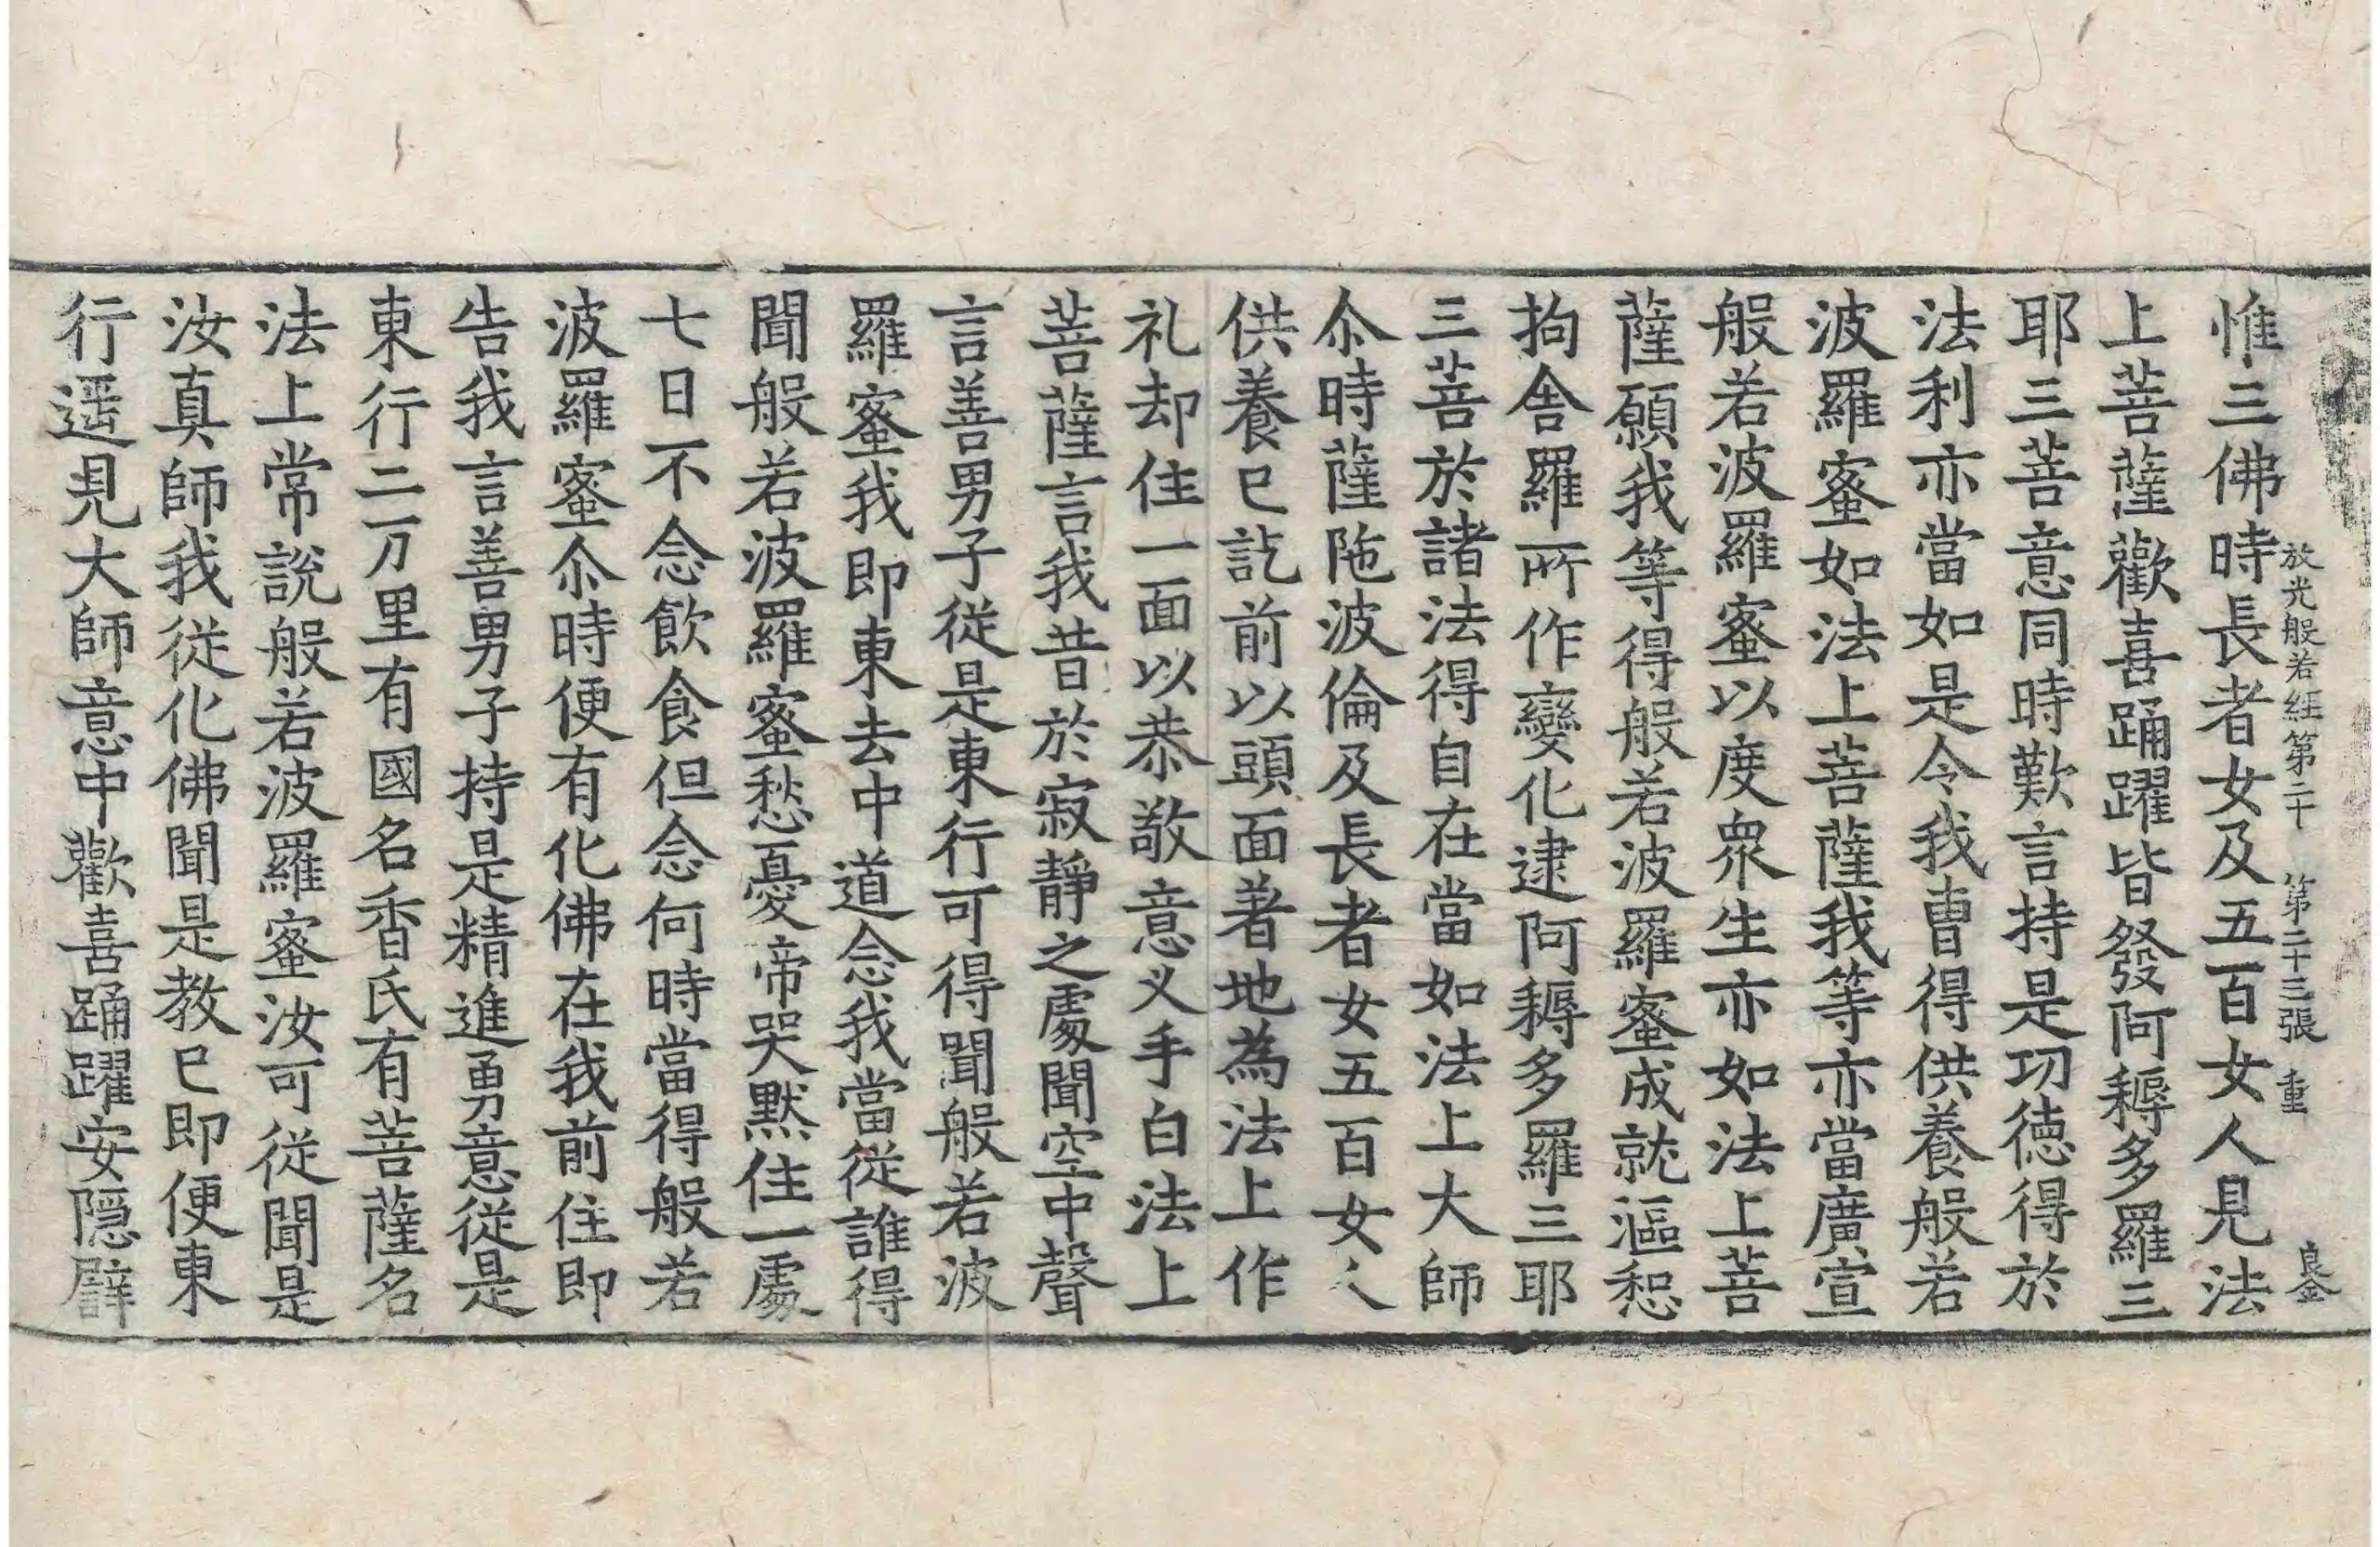 放光般若經第二十 第二十三張 重 良金
惟三佛時長者女及五百女人見法
上菩薩歡喜踊躍皆發阿耨多羅三
耶三菩意同時歎言持是功德得於
法利亦當如是令我曹得供養般若
波羅蜜如法上菩薩我等亦當廣宣
般若波羅蜜以度衆生亦如法上菩
薩願我等得般若波羅蜜成就漚惒
拘舍羅所作變化逮阿耨多羅三耶
三菩於諸法得自在當如法上大師
尒時薩陁波倫及長者女五百女人
供養已訖前以頭面著地為法上作
礼却住一面以恭敬意叉手白法上
菩薩言我昔於寂靜之處聞空中聲
言善男子從是東行可得聞般若波
羅蜜我即東去中道念我當從誰得
聞般若波羅蜜愁憂啼哭默住一處
七日不念飲食但念何時當得般若
波羅蜜尒時便有化佛在我前住即
告我言善男子持是精進勇意從是
東行二万里有國名香氏有菩薩名
法上常說般若波羅蜜汝可從聞是
汝真師我從化佛聞是教已即便東
行遥見大師意中歡喜踊躍安隱譬